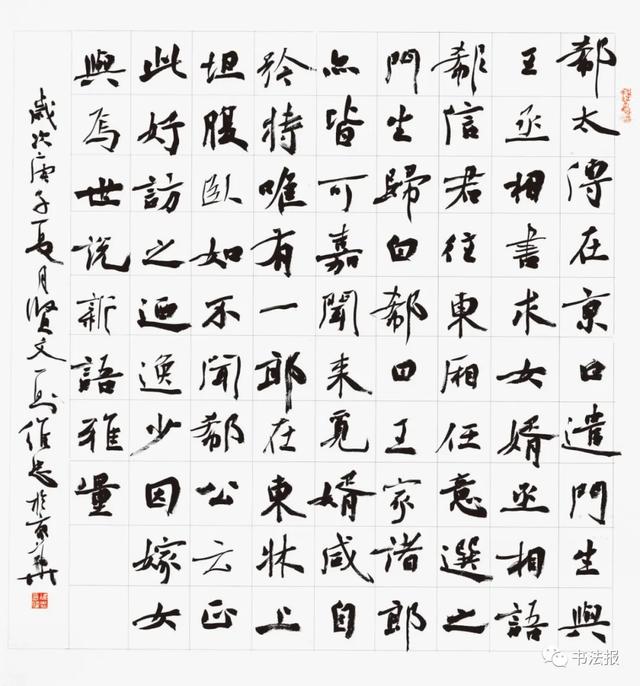 郗太傅在京口遣門生與
王丞相書求女婿丞相語
郗信君往東廂任意選之
門生歸白郗曰王家諸郎
亦皆可嘉聞來覓婿咸自
矜持唯有一郎在東牀上
坦腹臥如不聞郗公云正
此好訪之迺逸少因嫁女
與焉世說新語雅量
歲次庚子夏月賢文一則維忠於京華
书法报